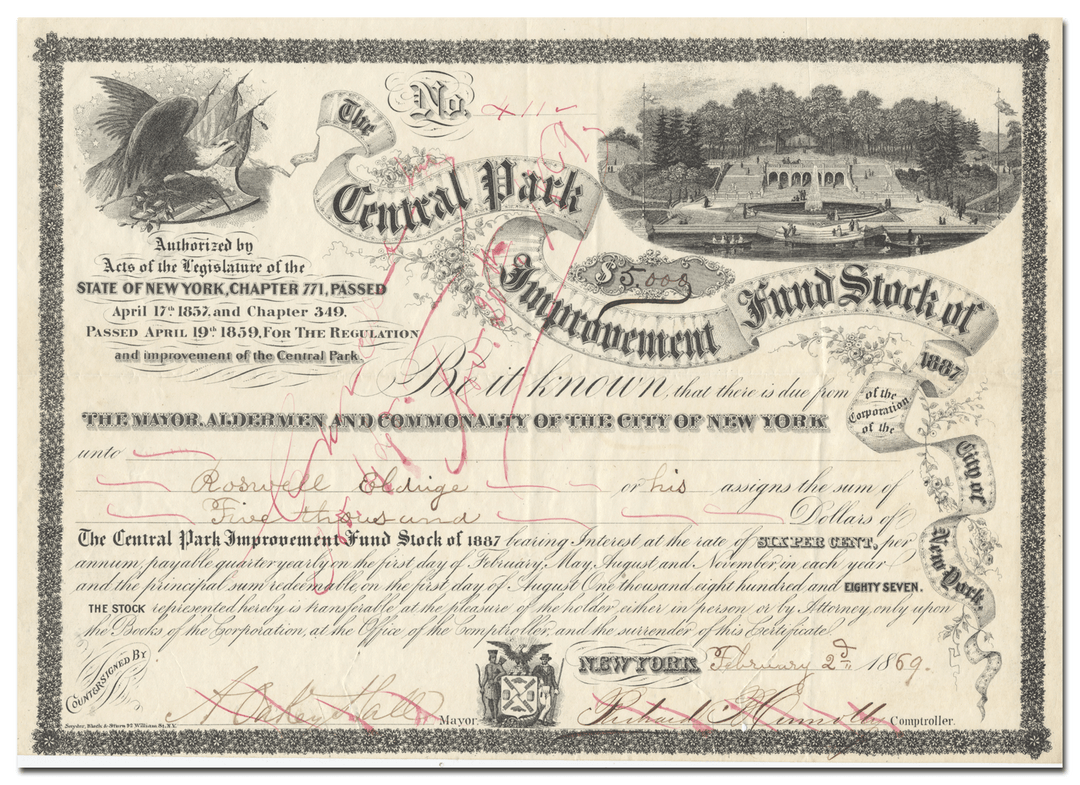 No.
The
Central Park
Improvement
Fund Stock of
1887
of the
Corporation
of the
City of
New York.
$5.000
Authorized by
Acts of the Legislature of the
STATE OF NEW YORK, CHAPTER 771, PASSED
April 17th 1857. and Chapter 349.
PASSED APRIL 19th 1859, FOR THE REGULATION
and improvement of the Central Park.
Be it known, that there is due from
THE MAYOR, ALDERMEN AND COMMONALTY OF THE CITY OF NEW YORK
unto
Roswell Eldrige or his assigns the sum of
Five thousand Dollars of
The Central Park Improvement Fund Stock of 1887 bearing Interest at the rate of SIX PER CENT, per
annum, payable quarter yearly on the first day of February, May, August and November in each year
and the principal sum redeemable, on the first day of August One thousand eight hundred and EIGHTY SEVEN.
THE STOCK represented hereby is transferable at the pleasure of the holder, either in person or by Attorney, only upon
the Books of the Corporation, at the Office of the Comptroller, and the surrender of this Certificate.
COUNTERSIGNED BY
NEW YORK February 2d 1869.
A Oakey Hall Mayor.
Richard B Connolly Comptroller.
Snyder, Black & Sturn 92 William St. N.Y.